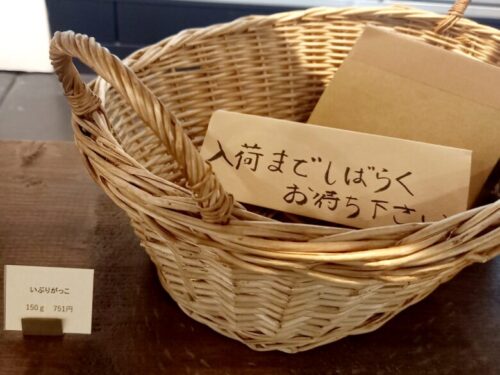 入荷までしばらく
お待ち下さい
いぶりがっこ
150g 751円